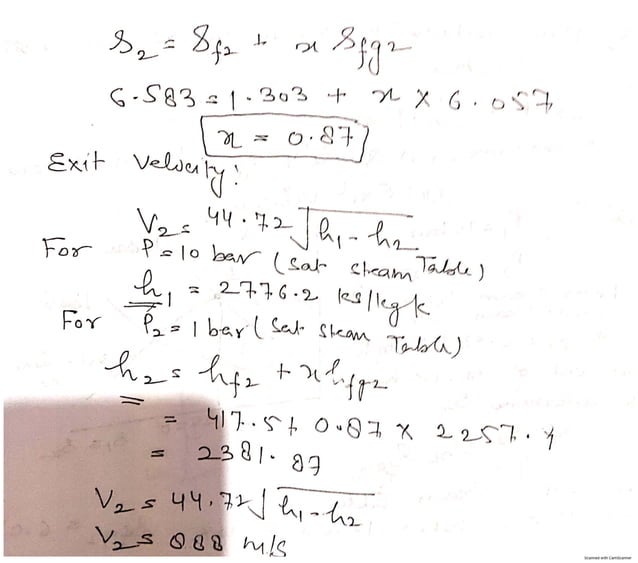 S₂ = Sf₂ + x Sfg₂
6.583 = 1.303 + x × 6.057
x = 0.87
Exit Velocity:
V₂ = 44.72 √(h₁ - h₂)
For P = 10 bar (Sat steam Table)
h₁ = 2776.2 ks/kgk
For P₂ = 1 bar (Sat Steam Table)
h₂ = hf₂ + x hfg₂
= 417.5 + 0.87 × 2257.9
= 2381.87
V₂ = 44.72 √(h₁ - h₂)
V₂ = 888 m/s
Scanned with CamScanner